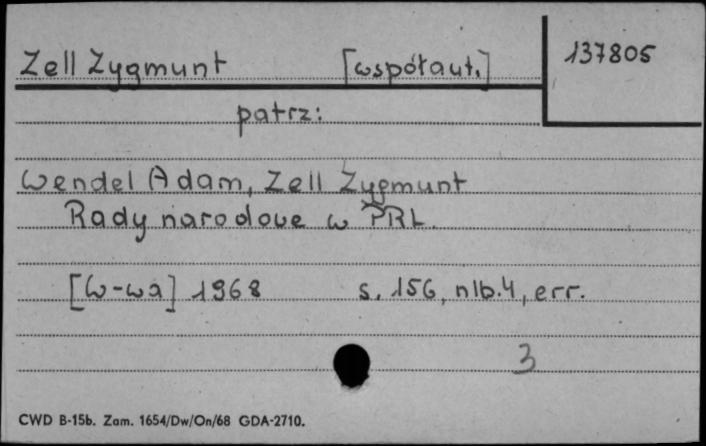 Zell Zygmunt [współaut.] 137805
patrz:
Wendel Adam, Zell Zygmunt
Rady narodowe w PRL.
[W-wa] 1968 s. 156, nlb. 4, err.
3
CWD B-15b. Zam. 1654/Dw/On/68 GDA-2710.